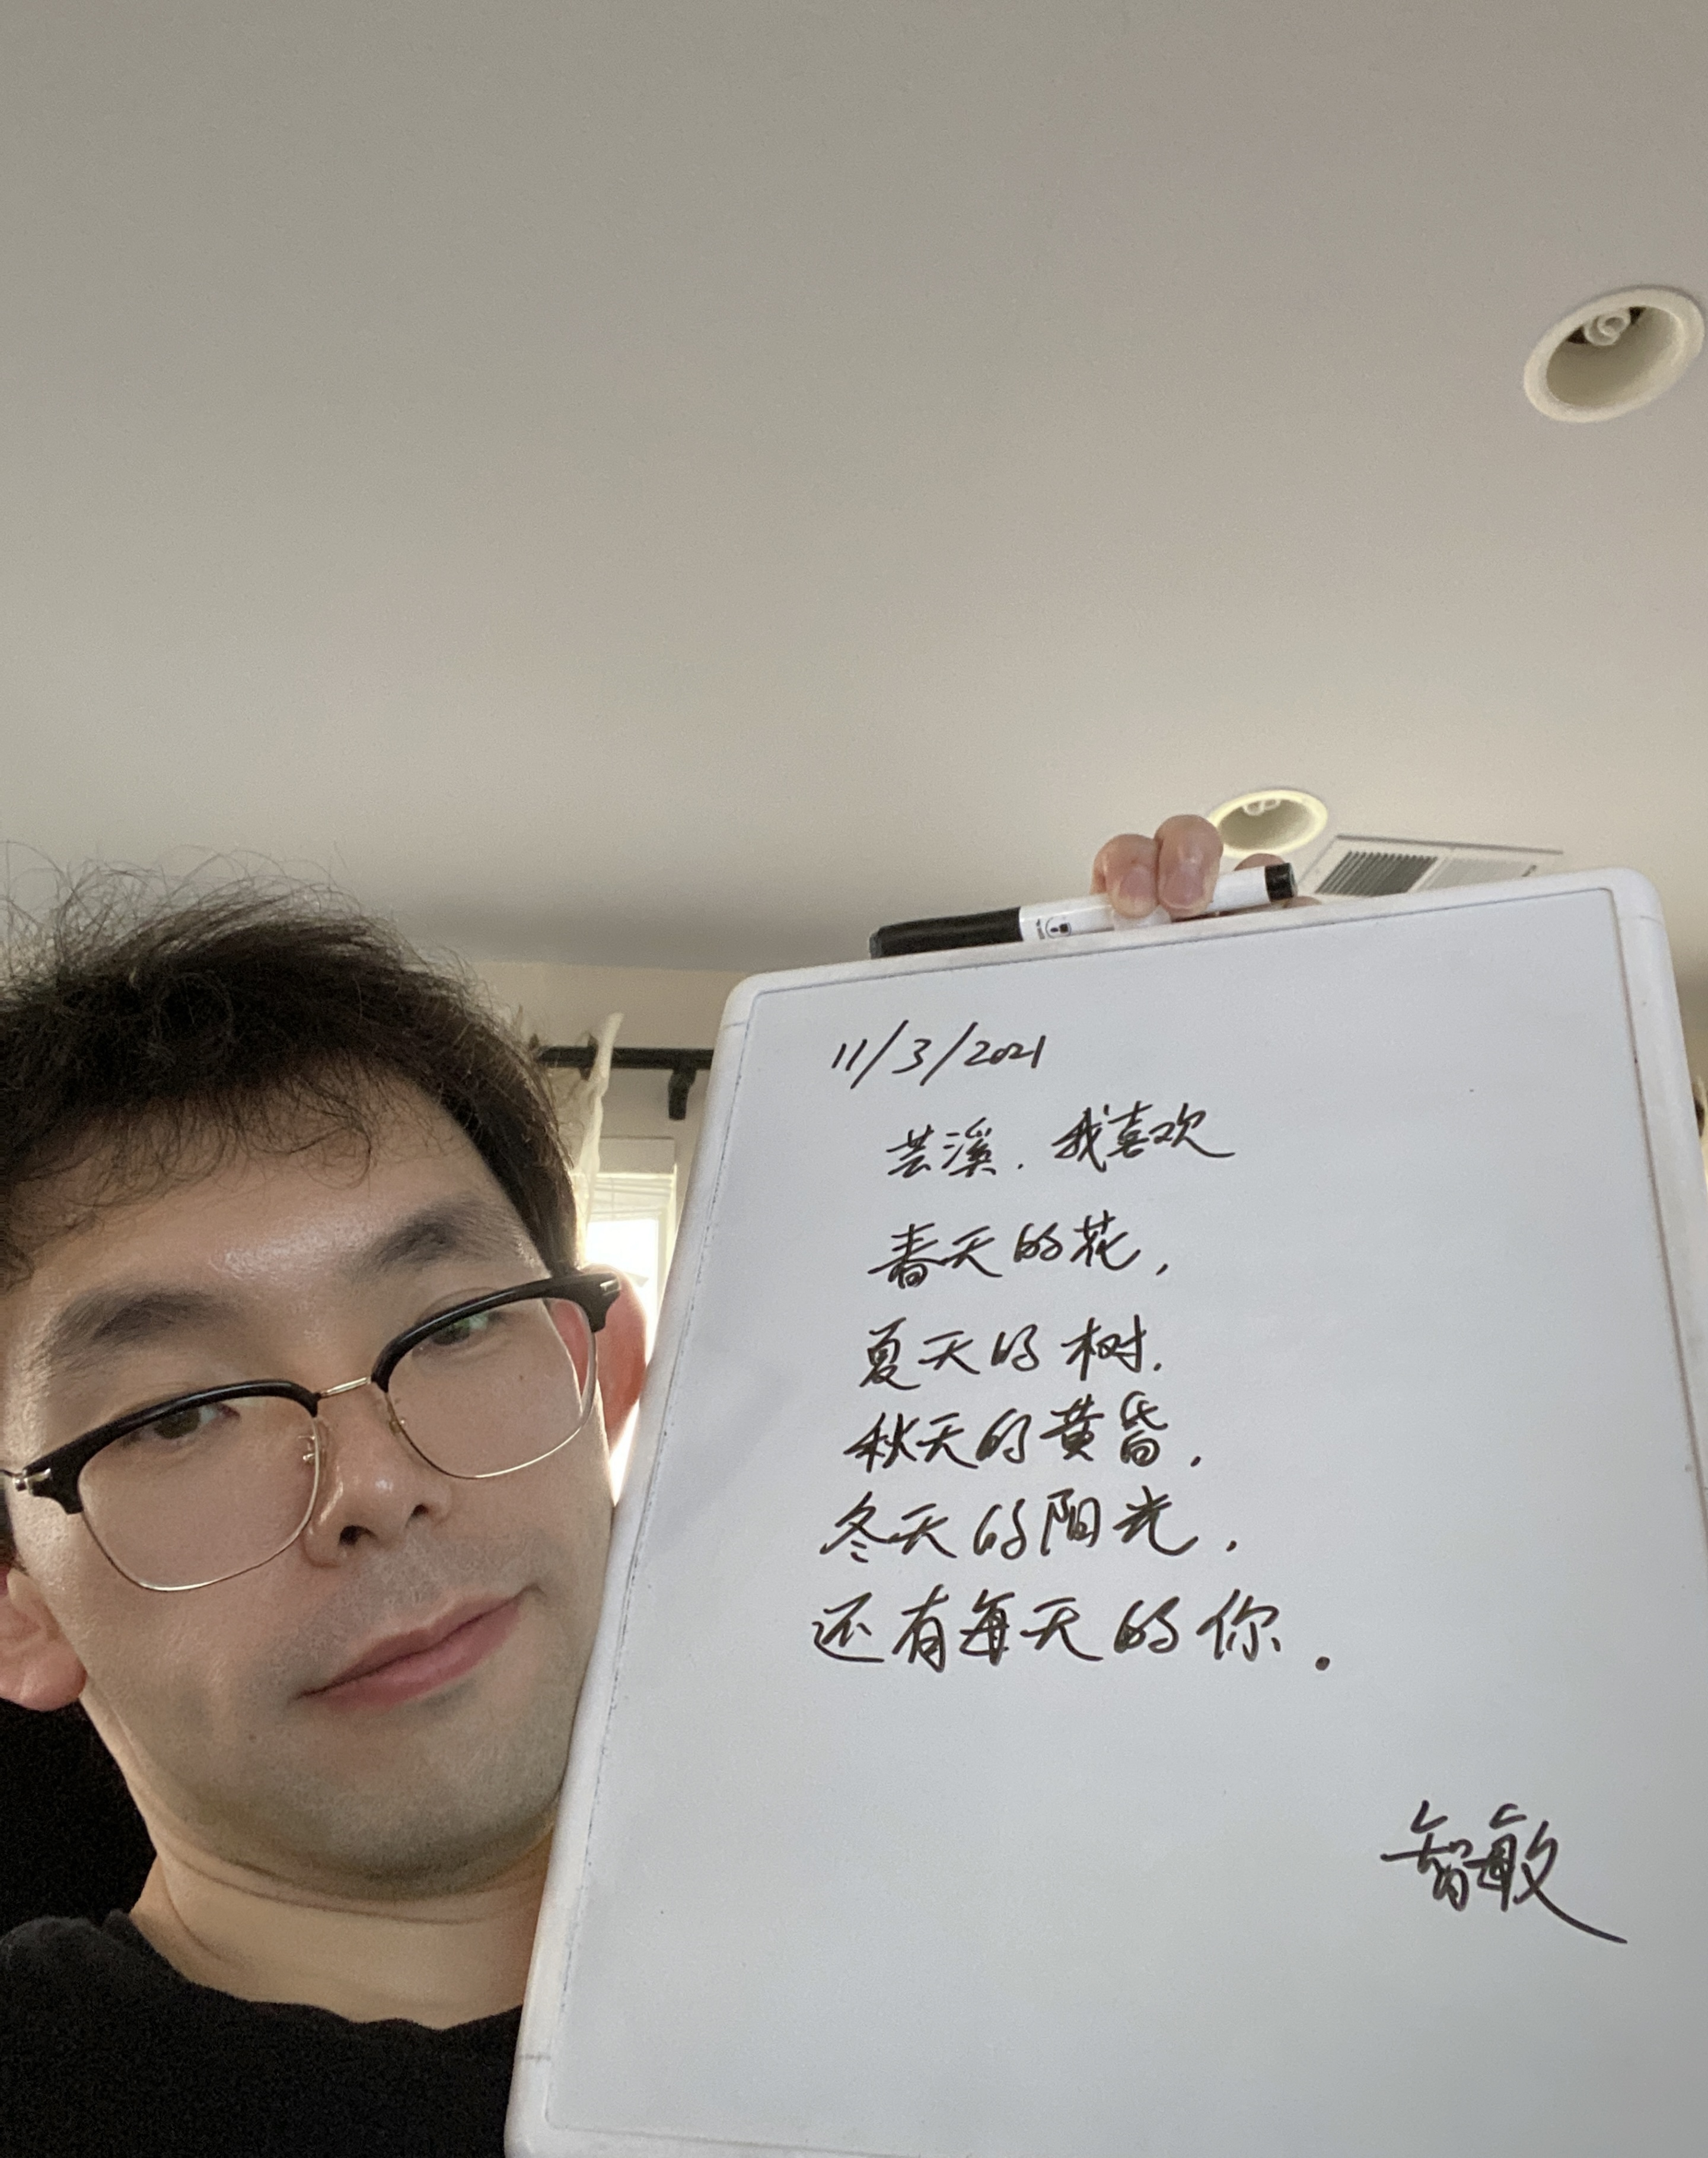 11/3/2021
芸溪，我喜欢
春天的花，
夏天的树，
秋天的黄昏，
冬天的阳光，
还有每天的你。
智敏